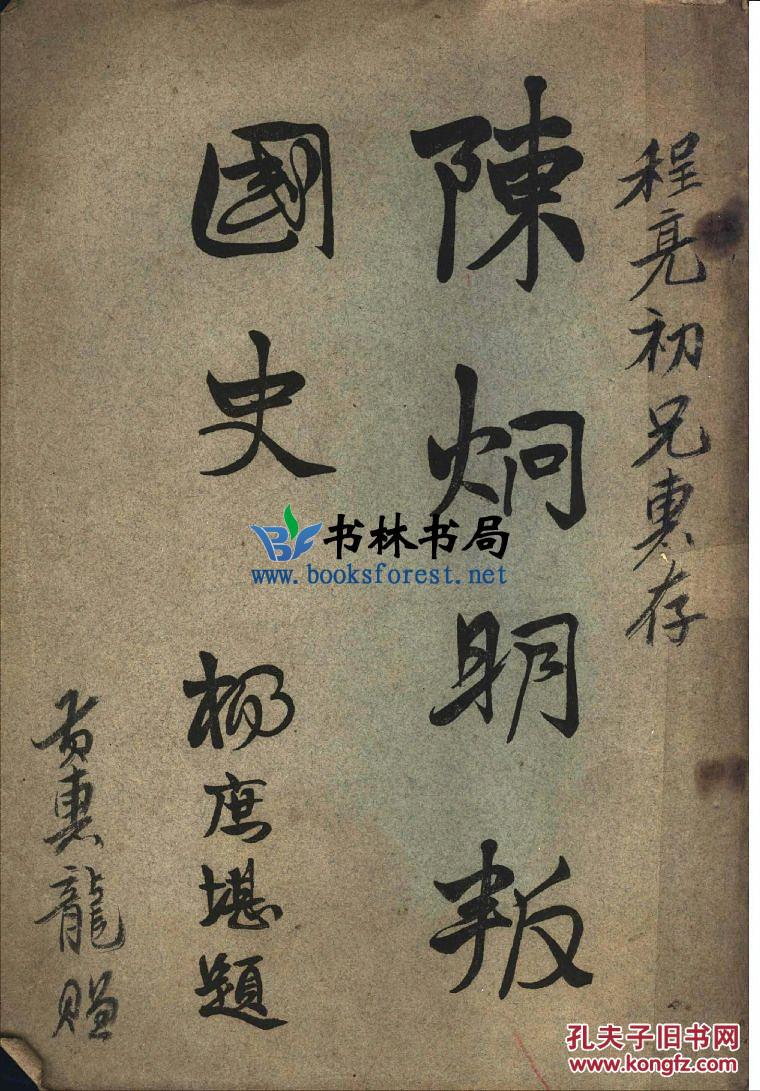 程亮初兄惠存
陳炯明叛
國史
楊庶堪題
黃惠龍贈
书林书局
www.booksforest.net
孔夫子旧书网
www.kongfz.com